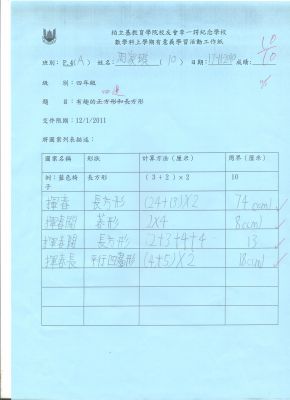 柏立基教育學院校友會李一諤紀念學校
數學科上學期有意義學習活動工作紙
班別：P.4(A) 姓名： (10) 日期： 成績：10/10
級 別：四年級
題 目：有趣的正方形和長方形
交件限期：12/1/2011
將圖案列表描述：
圖案名稱 形狀 計算方法（厘米） 周界（厘米）
例：藍色椅子 長方形 （3+2）×2 10
揮春 長方形 (24+13)X2 74cm
揮春 菱形 2X4 8cm
揮春 長方形 2+3+4+4 13
揮春長 平行四邊形 (4+5)X2 18cm